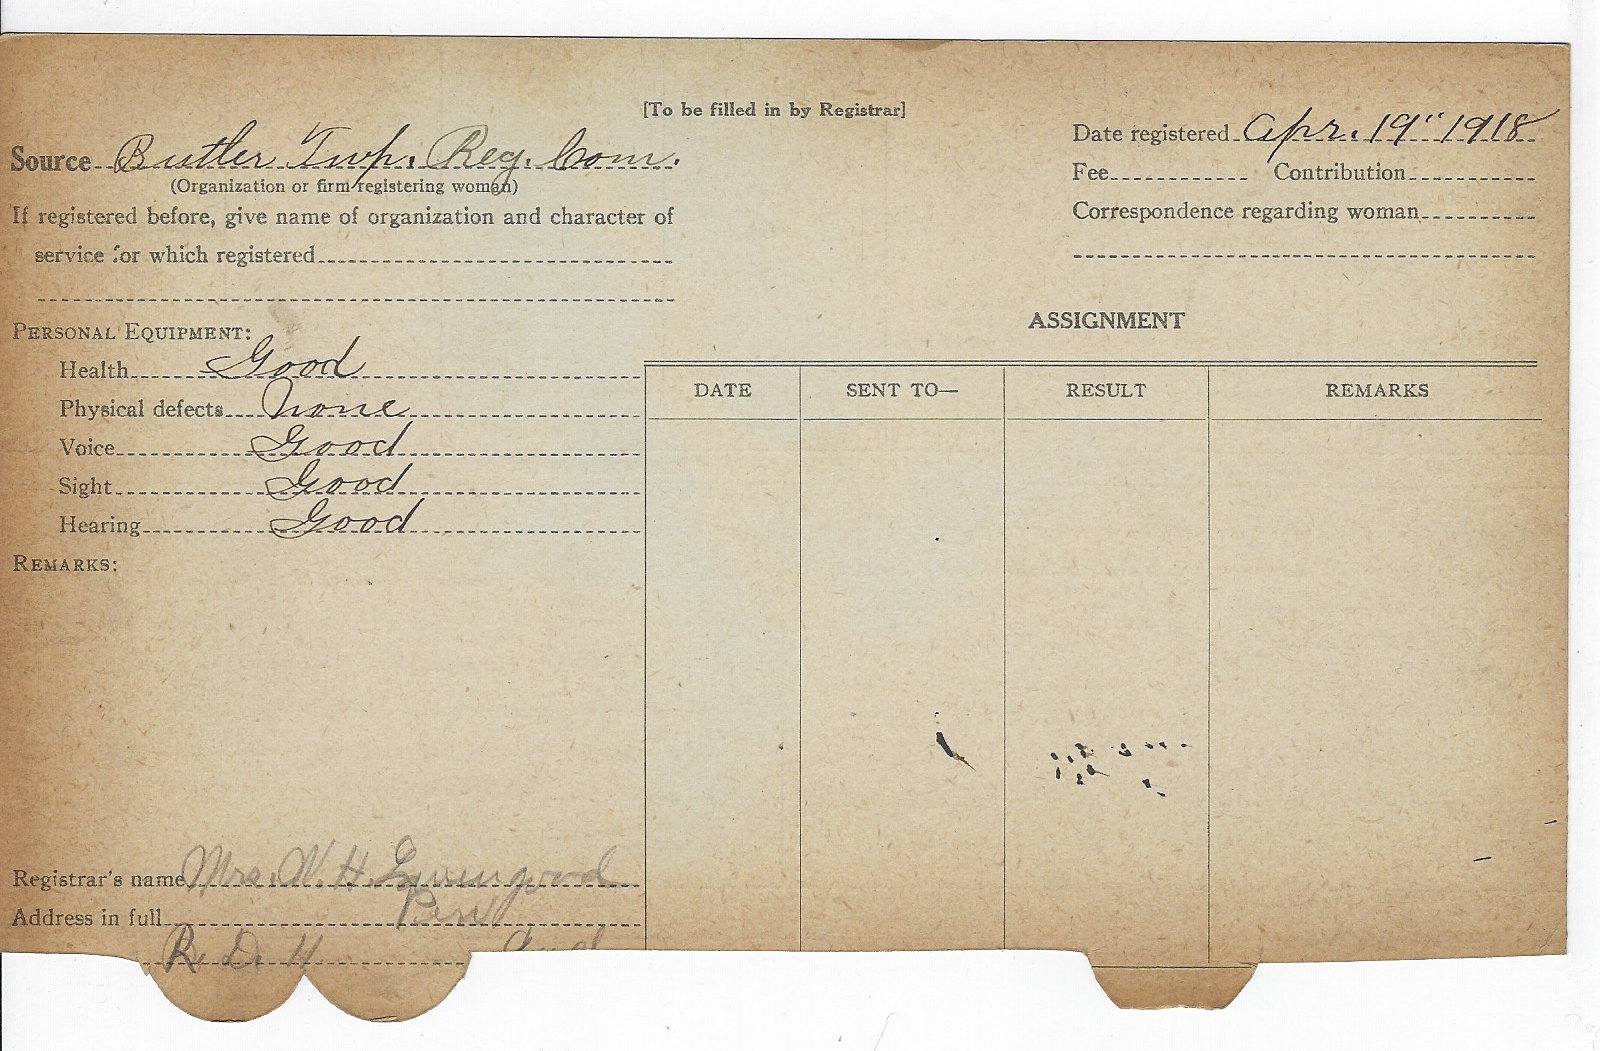 [To be filled in by Registrar]
Source Butler Twp. Reg. Com.
(Organization or firm registering woman)
If registered before, give name of organization and character of
service for which registered
Date registered Apr. 19" 1918
Fee Contribution
Correspondence regarding woman
PERSONAL EQUIPMENT:
Health Good
Physical defects None
Voice Good
Sight Good
Hearing Good
REMARKS:
ASSIGNMENT
DATE SENT TO— RESULT REMARKS
Registrar's name Mrs. W. H. Livengood
Address in full Peru
R. D. 4